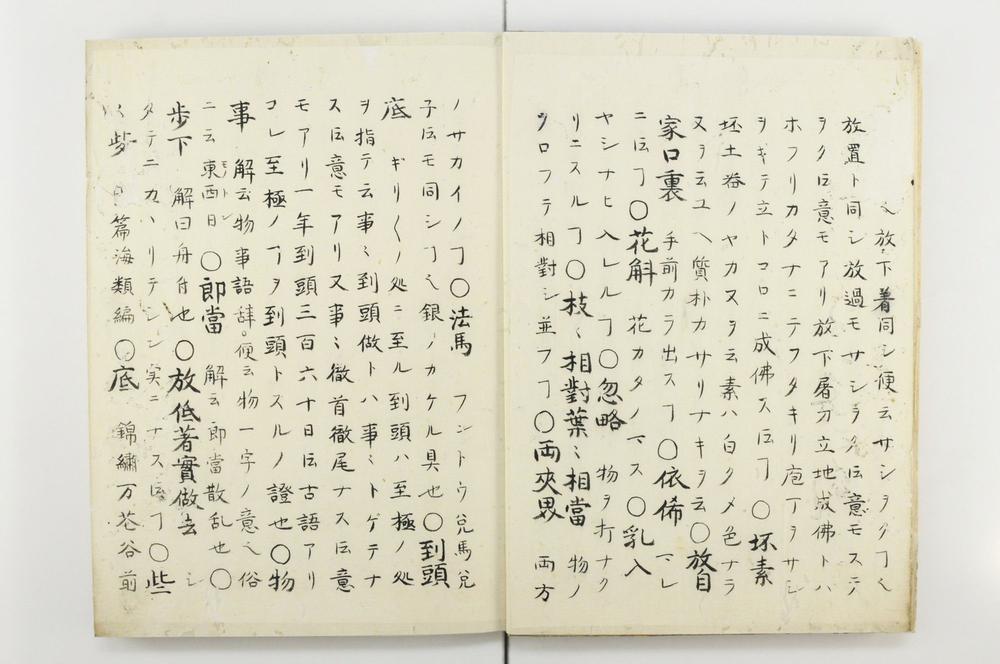 放下着同シ便云サシヲクフ
放置ト同シ放過モサシヲク𪜈意モステ
ヲク𪜈意モアリ放下屠刀立地成佛トハ
ホフリカタナニテフタキリ庖丁ヲサシ
ヲキテ立トコロニ成佛ス𪜈ヿ〇坯素
坯土器ノヤカヌヲ云素ハ白タメ色ナラ
ヌヲ云ユヘ質朴カサリナキヲ云〇放自
家口裏 手前カラ出スヿ〇依俙
ニ𪜈ヿ〇花斛 花カタノマス〇乳入
ヤシナヒ入レルヿ〇忽略 物ヲナク
リニスルヿ〇枝〻相對葉〻相當 物ノ
ツロフテ相對シ並フヿ〇両夾界 両方
ノサカイノヿ〇法馬 フントウ兌馬兌
子𪜈モ同シヿ銀ノカケル具也〇到頭
底 ギリ〱ノ処ニ至ル到頭ハ至極ノ処
ヲ指テ云事〻到頭做トハ事〻トゲテナ
ス𪜈意モアリ又事〻徹首徹尾ナス𪜈意
モアリ一年到頭三百六十日𪜈古語アリ
コレ至極ノヿヲ到頭トスルノ證也〇物
事 解云物事語辞便云物一字ノ意俗
ニ云東西日〇郎當 解云郎當散乱也〇
步下 解曰舟付也〇放低著實做去 シ
タテニカハリテシン実ニナス𪜈ヿ〇些
〱些 篇海類編〇底 錦繍万花谷前